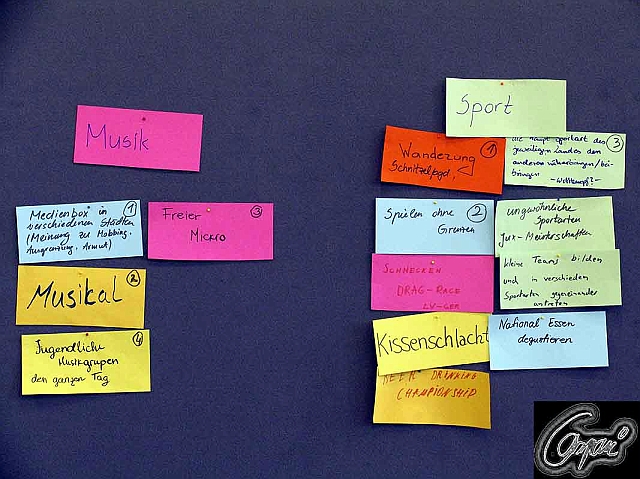 Musik
Medienbox in
verschiedenen Städten
(Meinung zu Mobbing,
Ausgrenzung, Armut)
1
Freier
Mickro
3
Musikal
2
Jugendliche
Musikgrupen
den ganzen Tag
4
Sport
Wanderung
Schnitzeljagd,
1
die haupt sportart des
jeweiligen Landes den
anderen näherbringen/bei-
bringen -Wettkampf?-
3
Spielen ohne
Grenzen
2
ungwöhnliche
Sportarten
Jux-Meisterschaften
SCHNECKEN
DRAG-RACE
kleine Teams bilden
und in verschieden
Sportarten gegeneinander
antreten
Kissenschlacht
National Essen
degustieren
BEER DRINKING
CHAMPIONSHIP